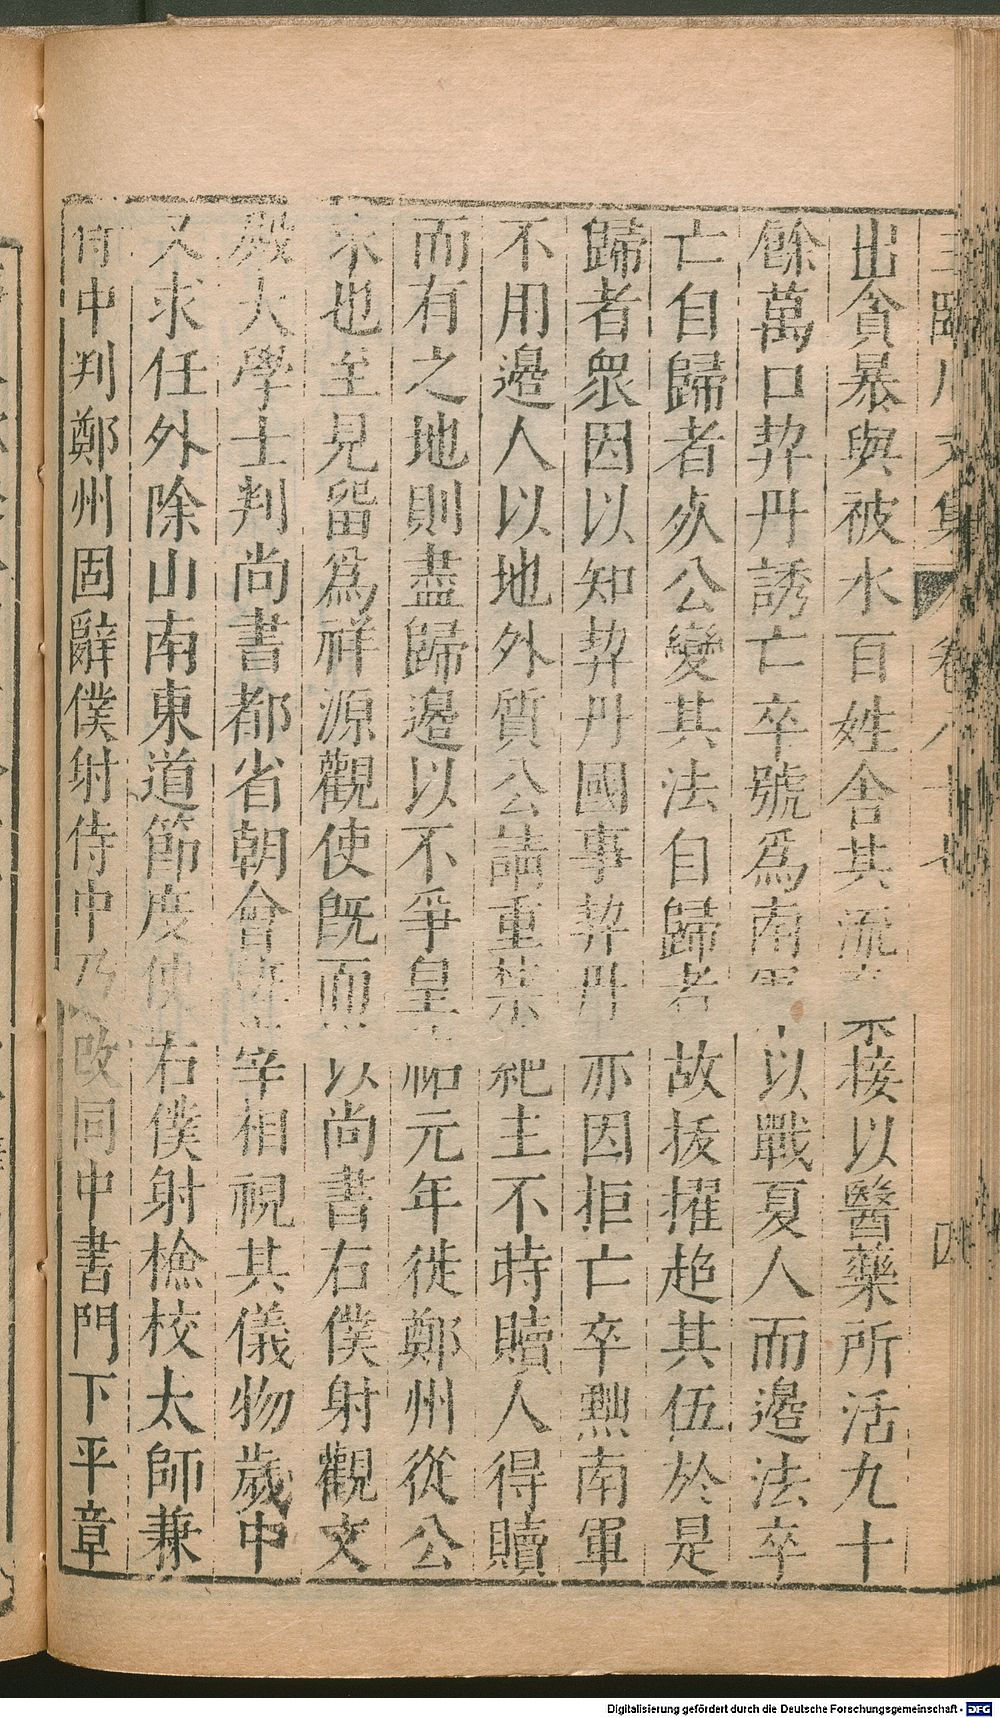 王臨川文集 卷八十七 四
出貪暴與被水百姓舍其流 接以醫藥所活九十
餘萬口契丹誘亡卒號爲南軍以戰夏人而邊法卒
亡自歸者死公變其法自歸者 故拔擢超其伍於是
歸者衆因以知契丹國事契丹亦因拒亡卒黜南軍
不用邊人以地外質公請重禁 主不時贖人得贖
而有之地則盡歸邊以不爭皇祐元年徙鄭州從公
求也至見留爲祥源觀使既而 以尚書右僕射觀文
殿大學士判尚書都省朝會 宰相視其儀物歲中
又求任外除山南東道節度使右僕射檢校太師兼
侍中判鄭州固辭僕射侍中乃改同中書門下平章
Digitalisierung gefördert durch die Deutsche Forschungsgemeinschaft - DFG